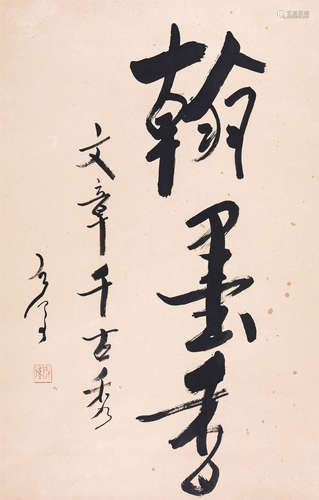 翰墨香
文章千古秀